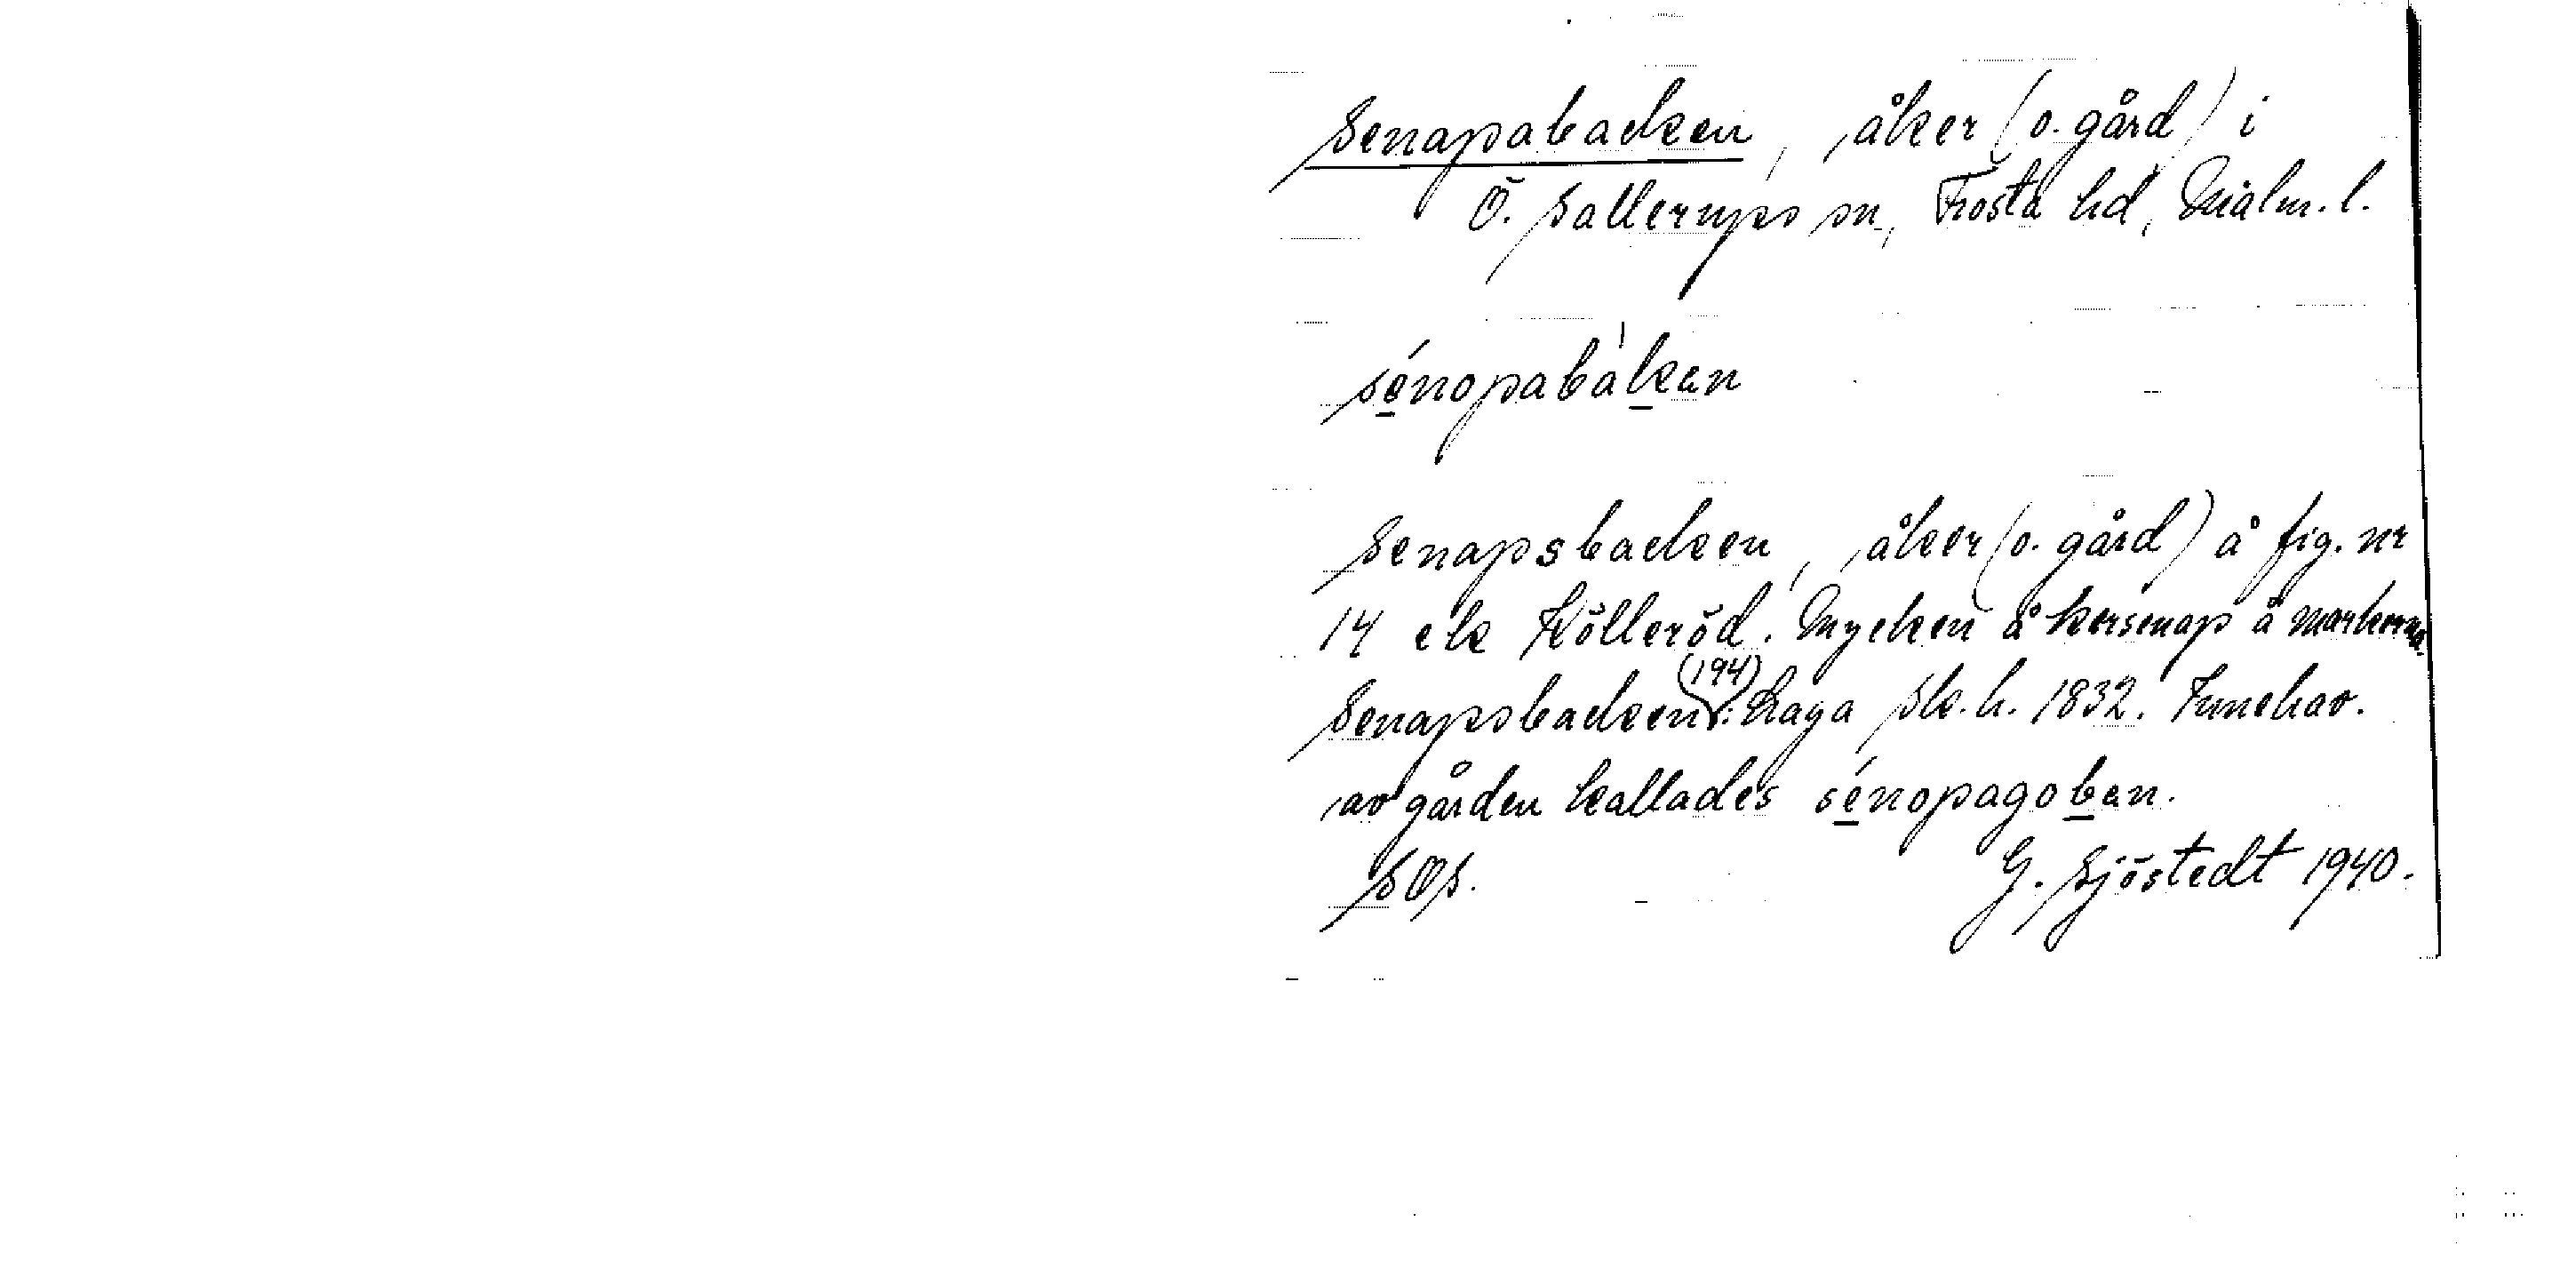 Senapabacken, åker (o. gård) i
Ö. Sallerups sn, Frosta hd, Malm. l.
sénopabàkan
Senapsbacken, åker (o. gård) å fig. nr
14 ek Kölleröd. Mycken åkersenap å markerna.
Senapsbacken (194): Laga sk. h. 1832. Innehav.
av gården kallades sénopagoban.
SOS. G. Sjöstedt 1940.